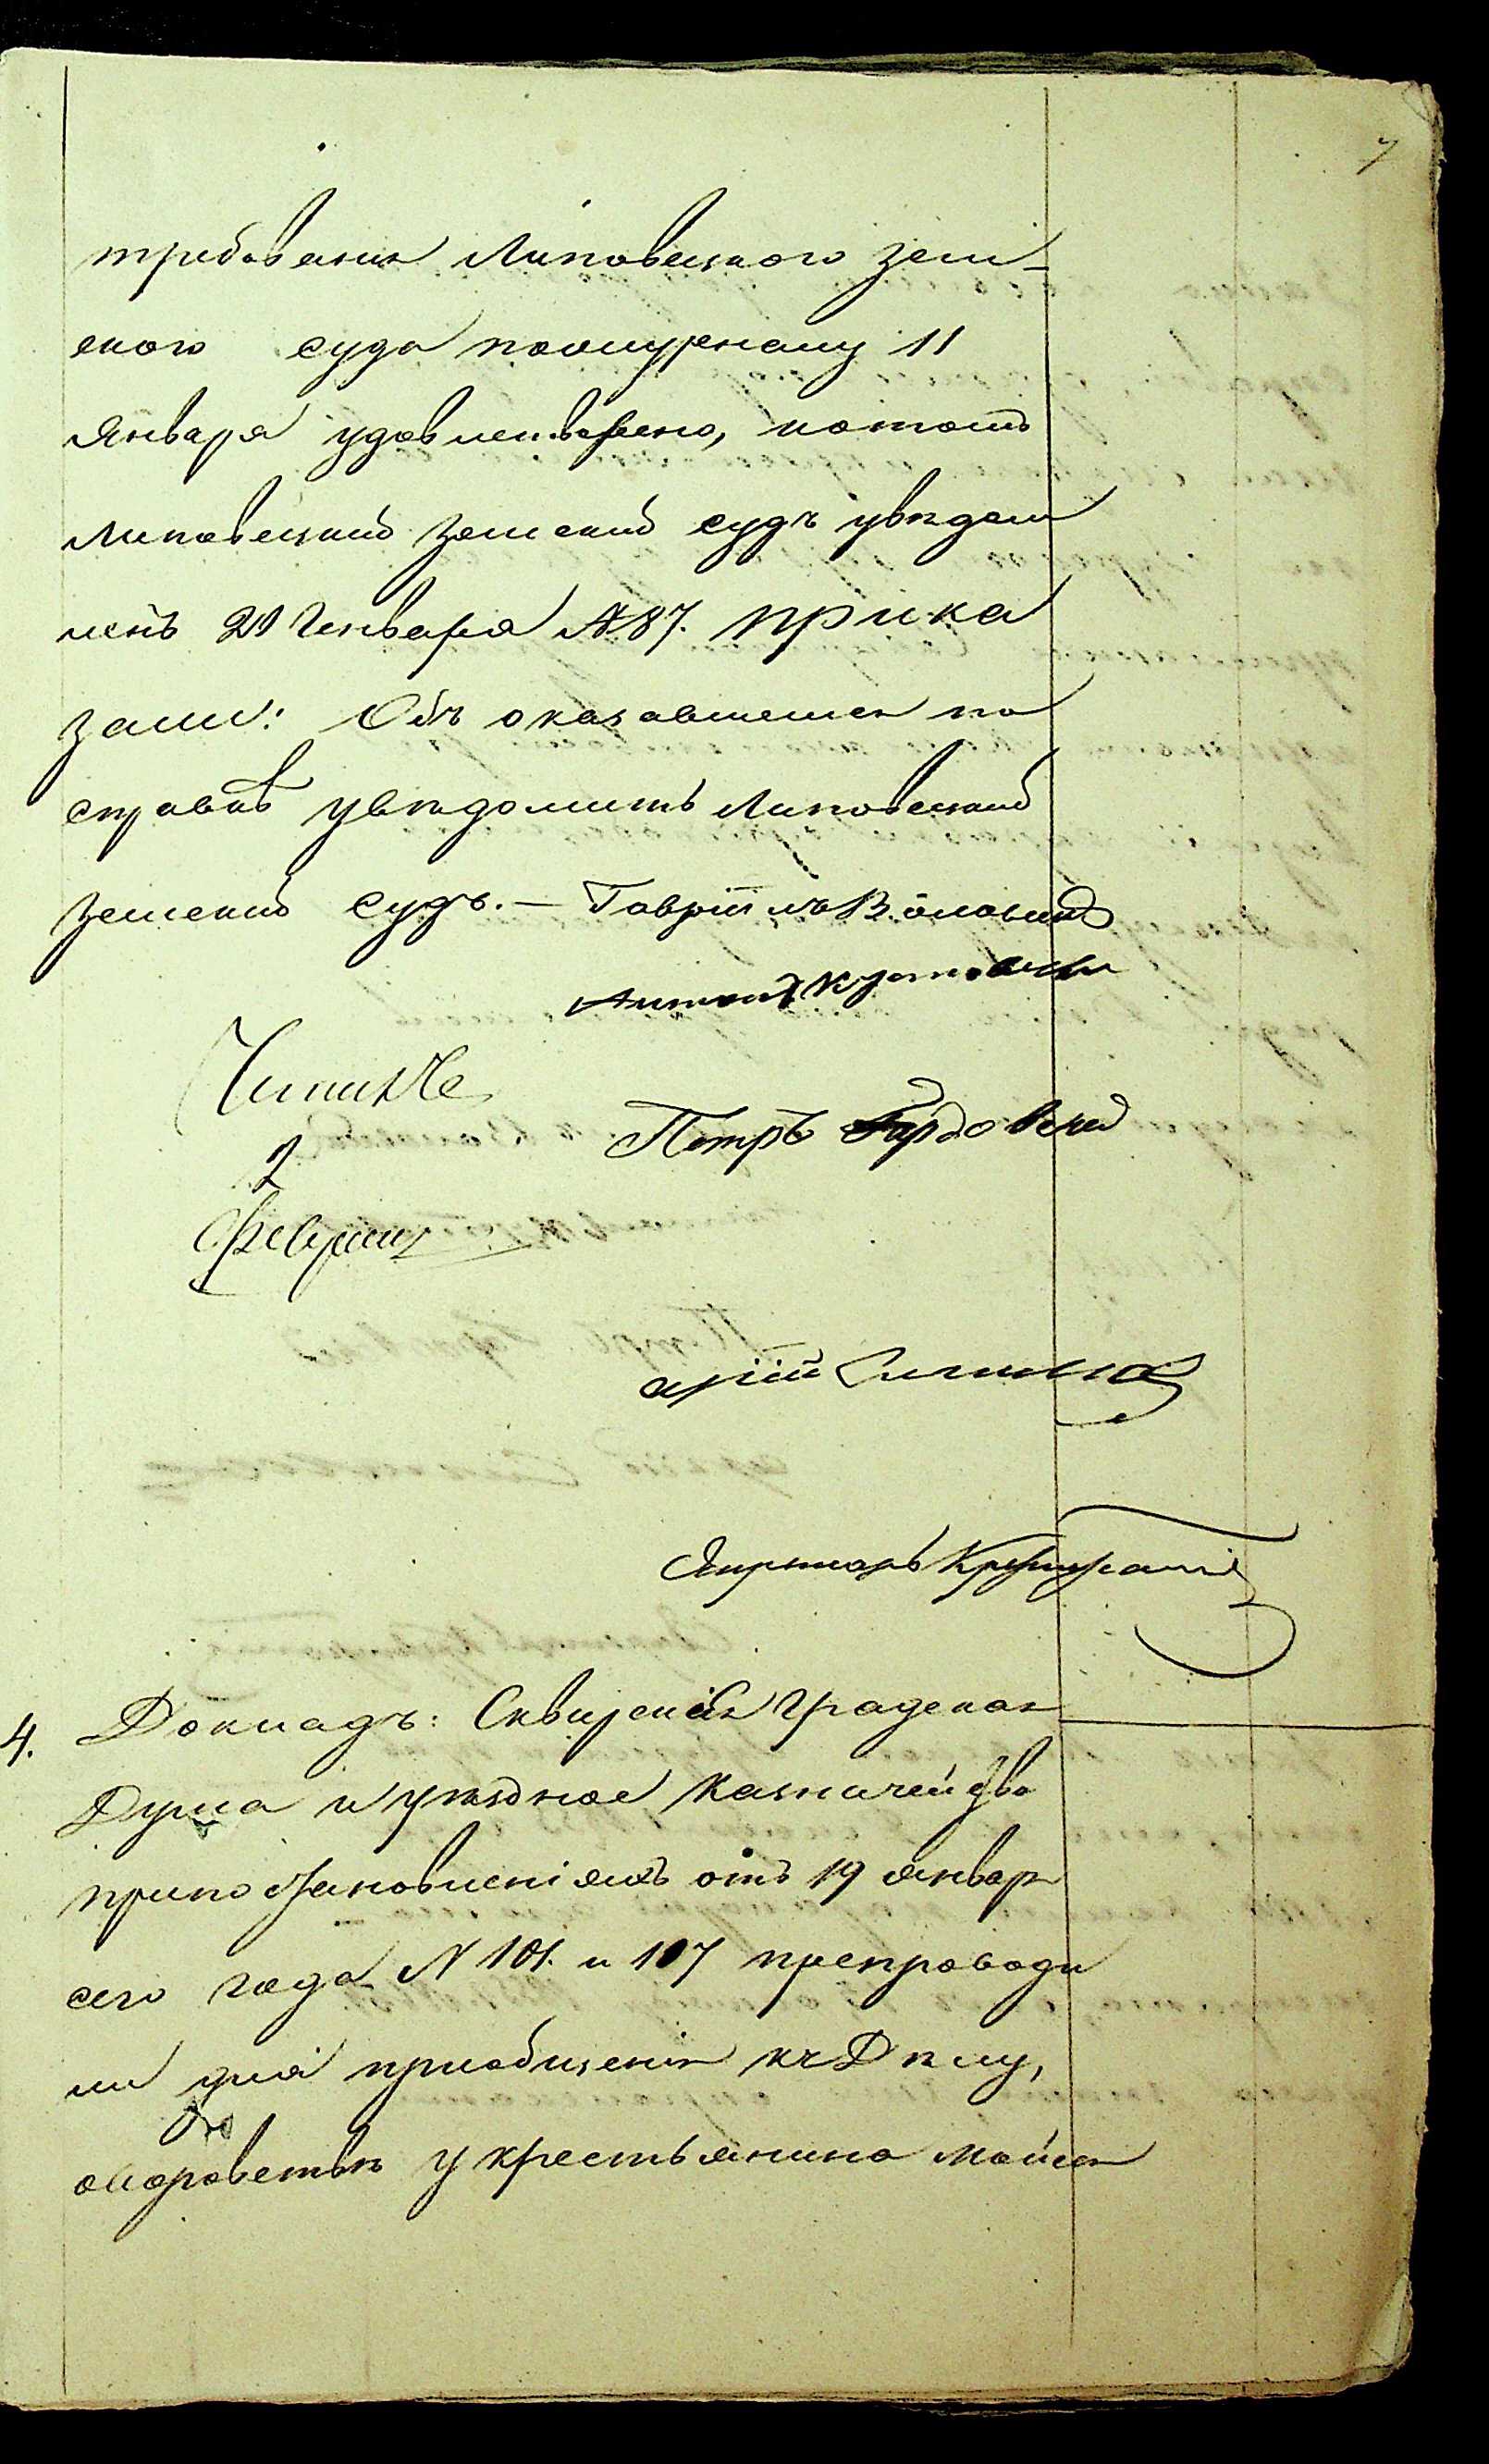 7
требованіе Липовецкого зем-
скаго суда пожурналу 11
Января удовлетворено, и о томъ
Липовецкий Земский судъ уведом
ленъ 20 Генваря № 87. прика
зали: Объ оказавшемся по
справкѣ уведомить Липовецкий
Земский судъ. — Гавріилъ
Антонъ
Читалъ
2
Февраля
Петръ
4. Докладъ: Сквирская Градская
Дума и уѣздное Казначейство
припостановленіяхъ отъ 19 январ
сего года N 101. и 107 препроводи
ли для приобщенія къ Дѣлу,
о
сиротствѣ у крестьянина Мойсея